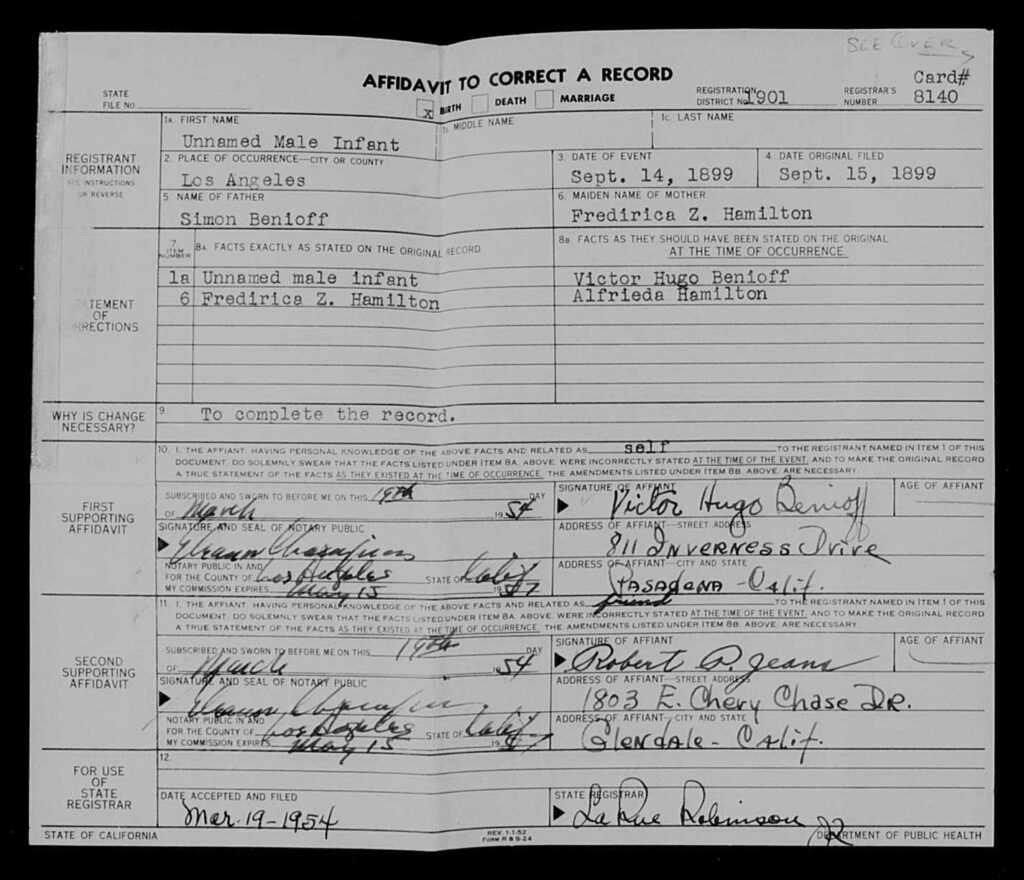 SEE COVER
AFFIDAVIT TO CORRECT A RECORD
STATE
FILE NO.
x BIRTH DEATH MARRIAGE
REGISTRATION
DISTRICT NO. 1901
REGISTRAR'S
NUMBER
Card#
8140
REGISTRANT
INFORMATION
SEE INSTRUCTIONS
ON REVERSE
1A FIRST NAME
Unnamed Male Infant
MIDDLE NAME
1C. LAST NAME
2. PLACE OF OCCURRENCE—CITY OR COUNTY
Los Angeles
3. DATE OF EVENT
Sept. 14, 1899
4. DATE ORIGINAL FILED
Sept. 15, 1899
5. NAME OF FATHER
Simon Benioff
6. MAIDEN NAME OF MOTHER
Fredirica Z. Hamilton
TEMENT
OF
RRECTIONS
7
ITEM
NUMBER
8A FACTS EXACTLY AS STATED ON THE ORIGINAL RECORD
8B. FACTS AS THEY SHOULD HAVE BEEN STATED ON THE ORIGINAL
AT THE TIME OF OCCURRENCE.
1a Unnamed male infant Victor Hugo Benioff
6 Fredirica Z. Hamilton Alfrieda Hamilton
WHY IS CHANGE
NECESSARY?
9. To complete the record.
FIRST
SUPPORTING
AFFIDAVIT
10. I, THE AFFIANT, HAVING PERSONAL KNOWLEDGE OF THE ABOVE FACTS AND RELATED AS self TO THE REGISTRANT NAMED IN ITEM 1 OF THIS
DOCUMENT, DO SOLEMNLY SWEAR THAT THE FACTS LISTED UNDER ITEM 8A, ABOVE, WERE INCORRECTLY STATED AT THE TIME OF THE EVENT, AND TO MAKE THE ORIGINAL RECORD
A TRUE STATEMENT OF THE FACTS AS THEY EXISTED AT THE TIME OF OCCURRENCE, THE AMENDMENTS LISTED UNDER ITEM 8B, ABOVE, ARE NECESSARY
SUBSCRIBED AND SWORN TO BEFORE ME ON THIS 19th DAY
OF March 1954
SIGNATURE OF AFFIANT
Victor Hugo Benioff
AGE OF AFFIANT
SIGNATURE AND SEAL OF NOTARY PUBLIC
ADDRESS OF AFFIANT—STREET ADDRESS
811 INVERNESS DRIVE
NOTARY PUBLIC IN AND
FOR THE COUNTY OF Los Angeles STATE OF Calif
MY COMMISSION EXPIRES May 15 1957
ADDRESS OF AFFIANT—CITY AND STATE
PASADENA - Calif.
SECOND
SUPPORTING
AFFIDAVIT
11. I, THE AFFIANT, HAVING PERSONAL KNOWLEDGE OF THE ABOVE FACTS AND RELATED AS friend TO THE REGISTRANT NAMED IN ITEM 1 OF THIS
DOCUMENT, DO SOLEMNLY SWEAR THAT THE FACTS LISTED UNDER ITEM 8A, ABOVE, WERE INCORRECTLY STATED AT THE TIME OF THE EVENT, AND TO MAKE THE ORIGINAL RECORD
A TRUE STATEMENT OF THE FACTS AS THEY EXISTED AT THE TIME OF OCCURRENCE, THE AMENDMENTS LISTED UNDER ITEM 8B, ABOVE, ARE NECESSARY
SUBSCRIBED AND SWORN TO BEFORE ME ON THIS 19th DAY
OF March 1954
SIGNATURE OF AFFIANT
Robert P. Jeans
AGE OF AFFIANT
SIGNATURE AND SEAL OF NOTARY PUBLIC
ADDRESS OF AFFIANT—STREET ADDRESS
1803 E. Chevy Chase DR.
NOTARY PUBLIC IN AND
FOR THE COUNTY OF Los Angeles STATE OF Calif
MY COMMISSION EXPIRES May 15 1957
ADDRESS OF AFFIANT—CITY AND STATE
GLENDALE - Calif.
FOR USE
OF
STATE
REGISTRAR
12.
DATE ACCEPTED AND FILED
Mar. 19-1954
STATE REGISTRAR
La Rue Robinson
STATE OF CALIFORNIA
REV. 1-1-52
FORM R & S-24
DEPARTMENT OF PUBLIC HEALTH